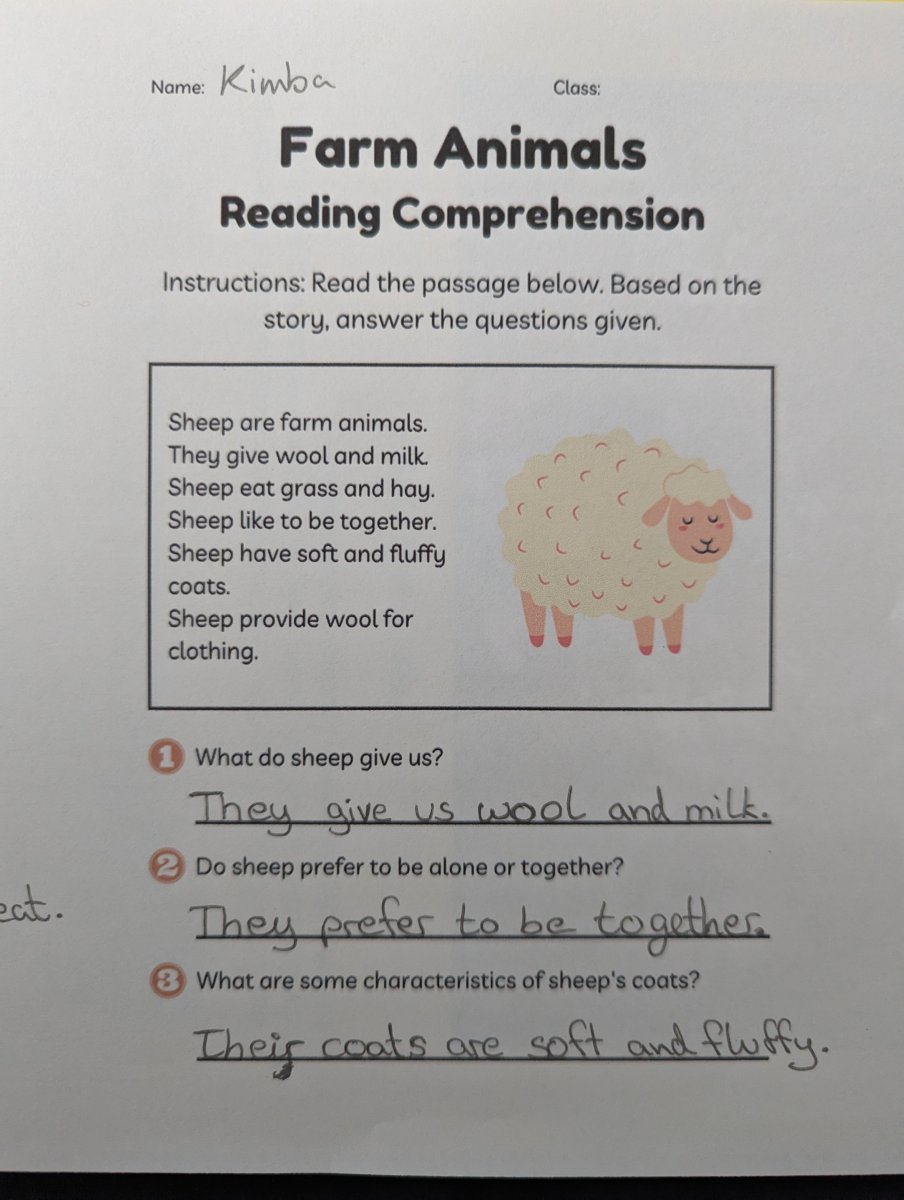 Name: Kimba Class:
Farm Animals
Reading Comprehension
Instructions: Read the passage below. Based on the
story, answer the questions given.
Sheep are farm animals.
They give wool and milk.
Sheep eat grass and hay.
Sheep like to be together.
Sheep have soft and fluffy
coats.
Sheep provide wool for
clothing.
1 What do sheep give us?
They give us wool and milk.
2 Do sheep prefer to be alone or together?
eat.
They prefer to be together.
3 What are some characteristics of sheep's coats?
Their coats are soft and fluffy.